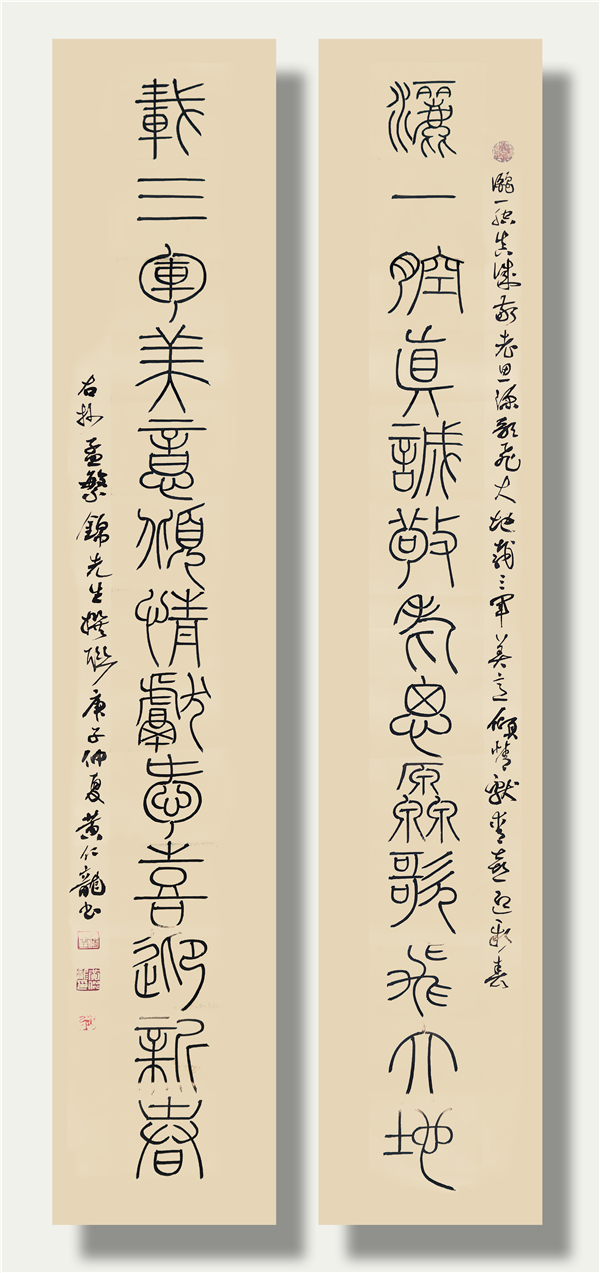 灑一腔真誠敬老思源歌飛大地載三軍美意傾情獻愛喜迎新春
灑一腔眞誠敬老思源歌飛大地
載三軍美意傾情獻愛喜迎新春
右抄孟繁錦先生撰聯庚子仲夏黃仁龍書